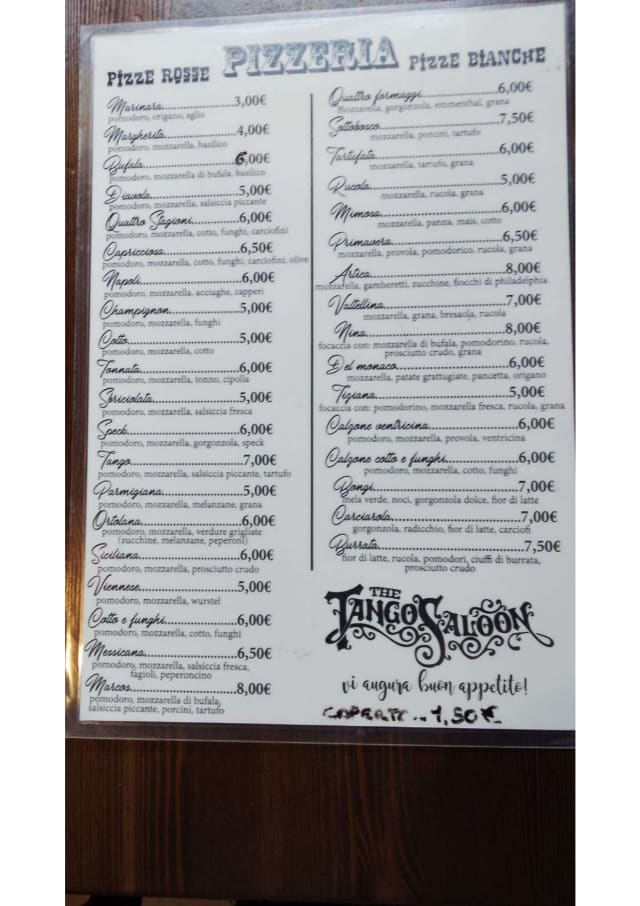 PIZZERIA
PIZZE ROSSE
Marinara 3,00€
pomodoro, origano, aglio
Margherita 4,00€
pomodoro, mozzarella, basilico
Bufala 6,00€
pomodoro, mozzarella di bufala, basilico
Diavola 5,00€
pomodoro, mozzarella, salsiccia piccante
Quattro Stagioni 6,00€
pomodoro, mozzarella, cotto, funghi, carciofini
Capricciosa 6,50€
pomodoro, mozzarella, cotto, funghi, carciofini, olive
Napoli 6,00€
pomodoro, mozzarella, acciughe, capperi
Champignon 5,00€
pomodoro, mozzarella, funghi
Cotto 5,00€
pomodoro, mozzarella, cotto
Tonnata 6,00€
pomodoro, mozzarella, tonno, cipolla
Sericiolata 5,00€
pomodoro, mozzarella, salsiccia fresca
Speck 6,00€
pomodoro, mozzarella, gorgonzola, speck
Tango 7,00€
pomodoro, mozzarella, salsiccia piccante, tartufo
Parmigiana 5,00€
pomodoro, mozzarella, melanzane, grana
Ortolana 6,00€
pomodoro, mozzarella, verdure grigliate
(zucchine, melanzane, peperoni)
Siciliana 6,00€
pomodoro, mozzarella, prosciutto crudo
Viennese 5,00€
pomodoro, mozzarella, wurstel
Cotto e funghi 6,00€
pomodoro, mozzarella, cotto, funghi
Messicana 6,50€
pomodoro, mozzarella, salsiccia fresca,
fagioli, peperoncino
Marcos 8,00€
pomodoro, mozzarella di bufala,
salsiccia piccante, porcini, tartufo
PIZZE BIANCHE
Quattro formaggi 6,00€
mozzarella, gorgonzola, emmenthal, grana
Sottobosco 7,50€
mozzarella, porcini, tartufo
Tartufata 6,00€
mozzarella, tartufo, grana
Rucola 5,00€
mozzarella, rucola, grana
Mimosa 6,00€
mozzarella, panna, mais, cotto
Primavera 6,50€
mozzarella, provola, pomodorico, rucola, grana
Artica 8,00€
mozzarella, gamberetti, zucchine, fiocchi di philadelphia
Valtellina 7,00€
mozzarella, grana, bresaola, rucola
Nina 8,00€
focaccia con: mozzarella di bufala, pomodorino, rucola,
prosciutto crudo, grana
Del monaco 6,00€
mozzarella, patate grattugiate, pancetta, origano
Tiziana 5,00€
focaccia con: pomodorino, mozzarella fresca, rucola, grana
Calzone ventricina 6,00€
pomodoro, mozzarella, provola, ventricina
Calzone cotto e funghi 6,00€
pomodoro, mozzarella, cotto, funghi
Bongi 7,00€
mela verde, noci, gorgonzola dolce, fior di latte
Carciarola 7,00€
gorgonzola, radicchio, fior di latte, carciofi
Burrata 7,50€
fior di latte, rucola, pomodori, ciuffi di burrata,
prosciutto crudo
THE
TANGO SALOON
vi augura buon appetito!
COPERTO .. 1,50 €